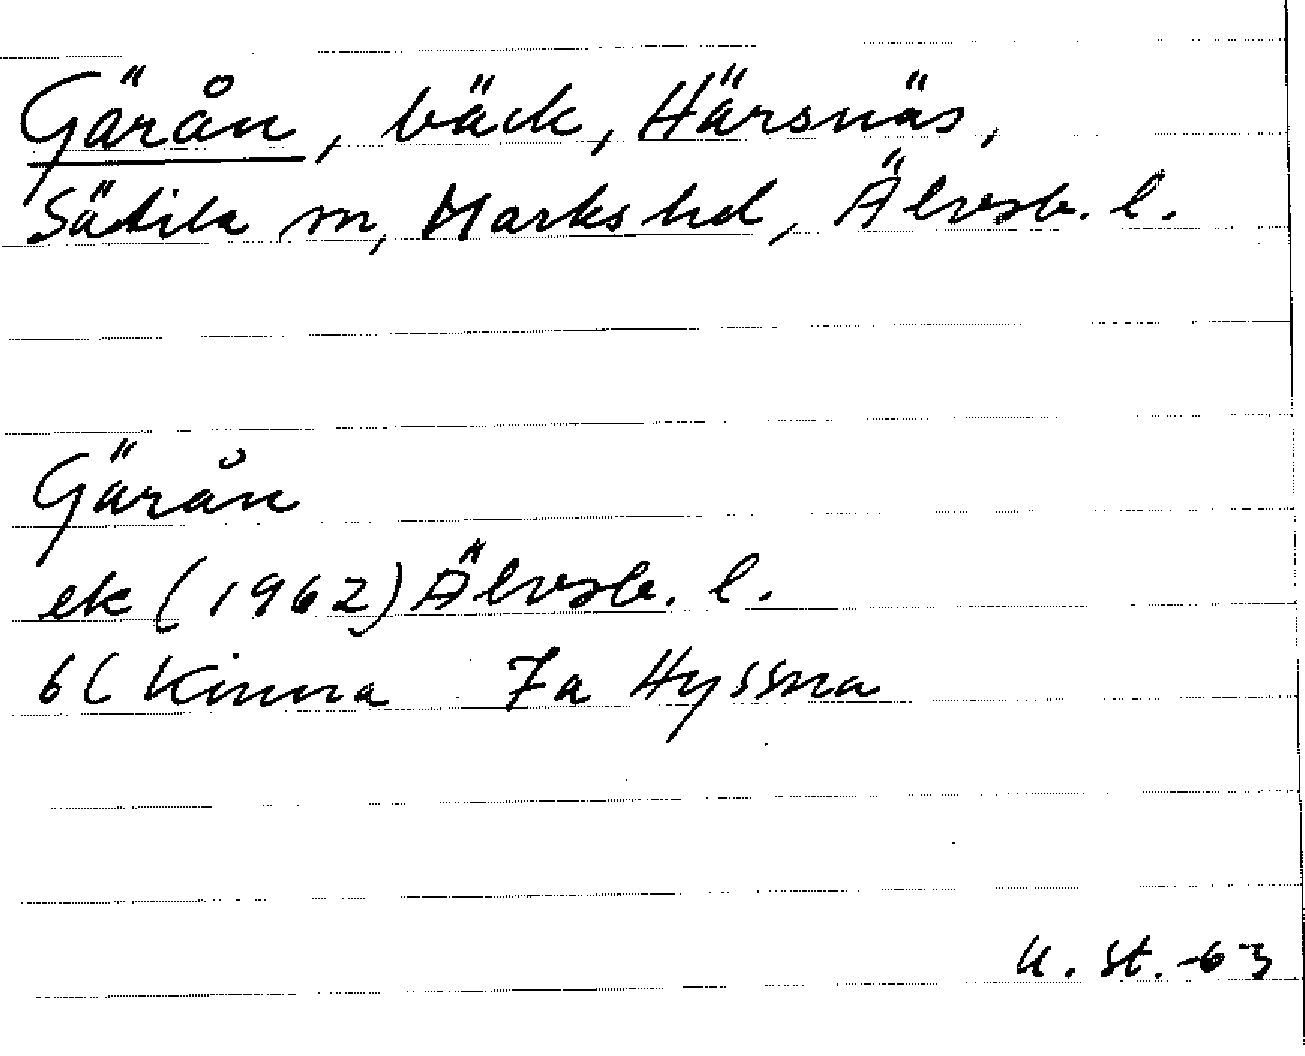 Gärån, bäck, Härsnäs,
Sätila sn, Marks hd, Älvsb. l.
Gärån
ek (1962) Älvsb. l.
6C Kinna 7a Hyssna
U. St. -63